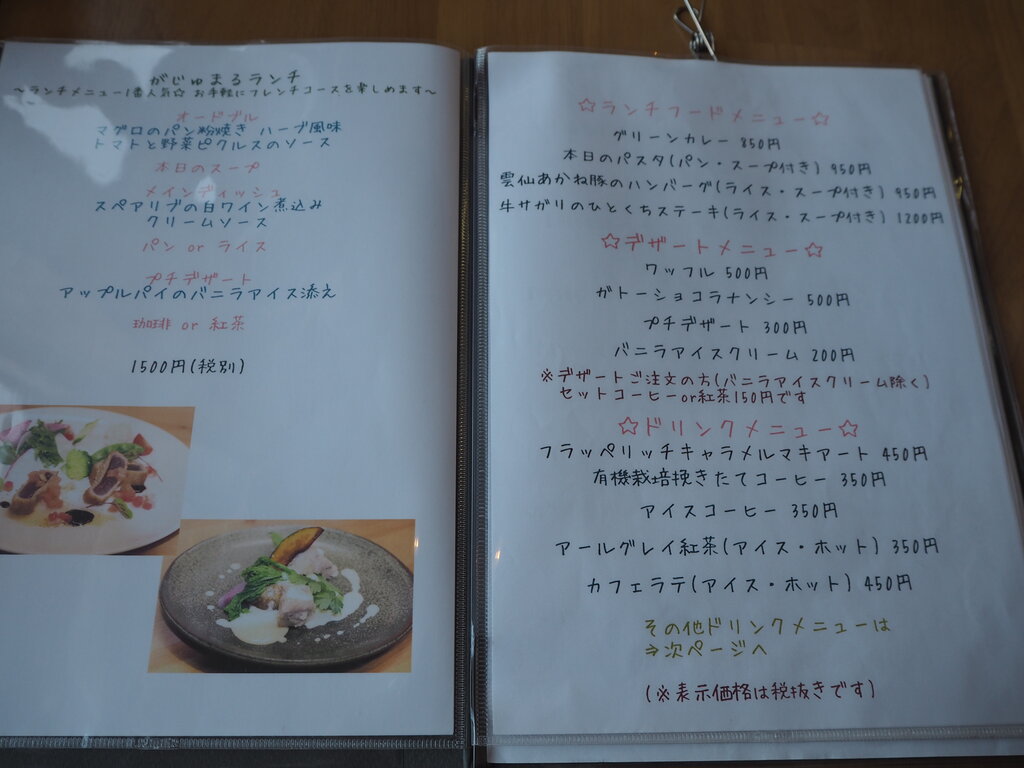 がじゅまるランチ
～ランチメニュー1番人気☆ お手軽にフレンチコースを楽しめます～
オードブル
マグロのパン粉焼き ハーブ風味
トマトと野菜ピクルスのソース
本日のスープ
メインディッシュ
スペアリブの白ワイン煮込み
クリームソース
パン or ライス
プチデザート
アップルパイのバニラアイス添え
珈琲 or 紅茶
1500円(税別)
☆ランチフードメニュー☆
グリーンカレー 850円
本日のパスタ(パン・スープ付き) 950円
雲仙あかね豚のハンバーグ(ライス・スープ付き) 950円
牛サガリのひとくちステーキ(ライス・スープ付き) 1200円
☆デザートメニュー☆
ワッフル 500円
ガトーショコラナンシー 500円
プチデザート 300円
バニラアイスクリーム 200円
※デザートご注文の方(バニラアイスクリーム除く)
セットコーヒーor紅茶150円です
☆ドリンクメニュー☆
フラッペリッチキャラメルマキアート 450円
有機栽培挽きたてコーヒー 350円
アイスコーヒー 350円
アールグレイ紅茶(アイス・ホット) 350円
カフェラテ(アイス・ホット) 450円
その他ドリンクメニューは
⇒次ページへ
(※表示価格は税抜きです)